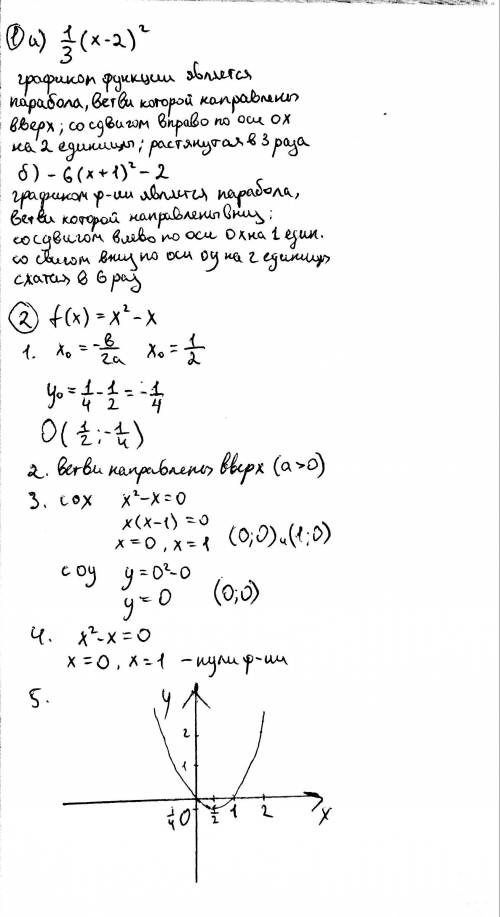 ① а) 1/3 (x-2)²
графиком функции является
парабола, ветви которой направлены
вверх; со сдвигом вправо по оси OX
на 2 единицы; растянутая в 3 раза
б) -6(x+1)²-2
графиком ф-ии является парабола,
ветви которой направлены вниз;
со сдвигом влево по оси OX на 1 един.
со свигом вниз по оси OY на 2 единицы
сжатая в 6 раз
② f(x) = x² - x
1. x₀ = -в/2a x₀ = 1/2
y₀ = 1/4 - 1/2 = -1/4
O(1/2; -1/4)
2. Ветви направлены вверх (a>0)
3. с OX x²-x=0
x(x-1)=0
x=0, x=1 (0;0) и (1;0)
с OY y=0²-0
y=0 (0;0)
4. x²-x=0
x=0, x=1 - нули ф-ии
5.
y
2
1
1/4 O 1/2 1 2 x